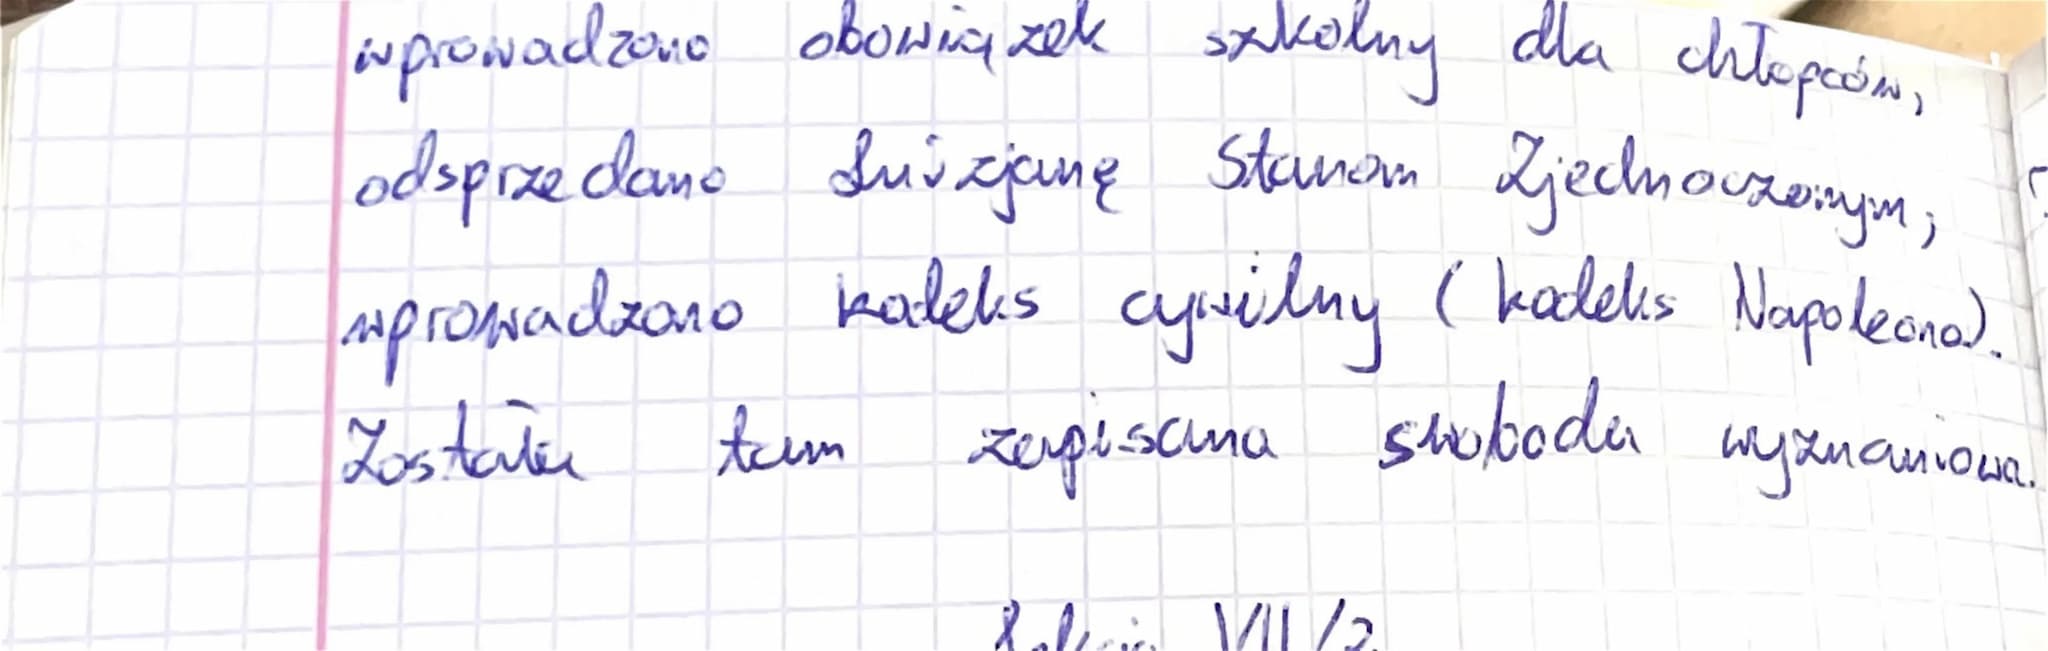 wprowadzono obowiązek szkolny dla chłopców,
odsprzedano Luizjanę Stanom Zjednoczonym,
wprowadzono kodeks cywilny (kodeks Napoleona).
Została tam zapisana swoboda wyznaniowa.
Lekcja VII/2